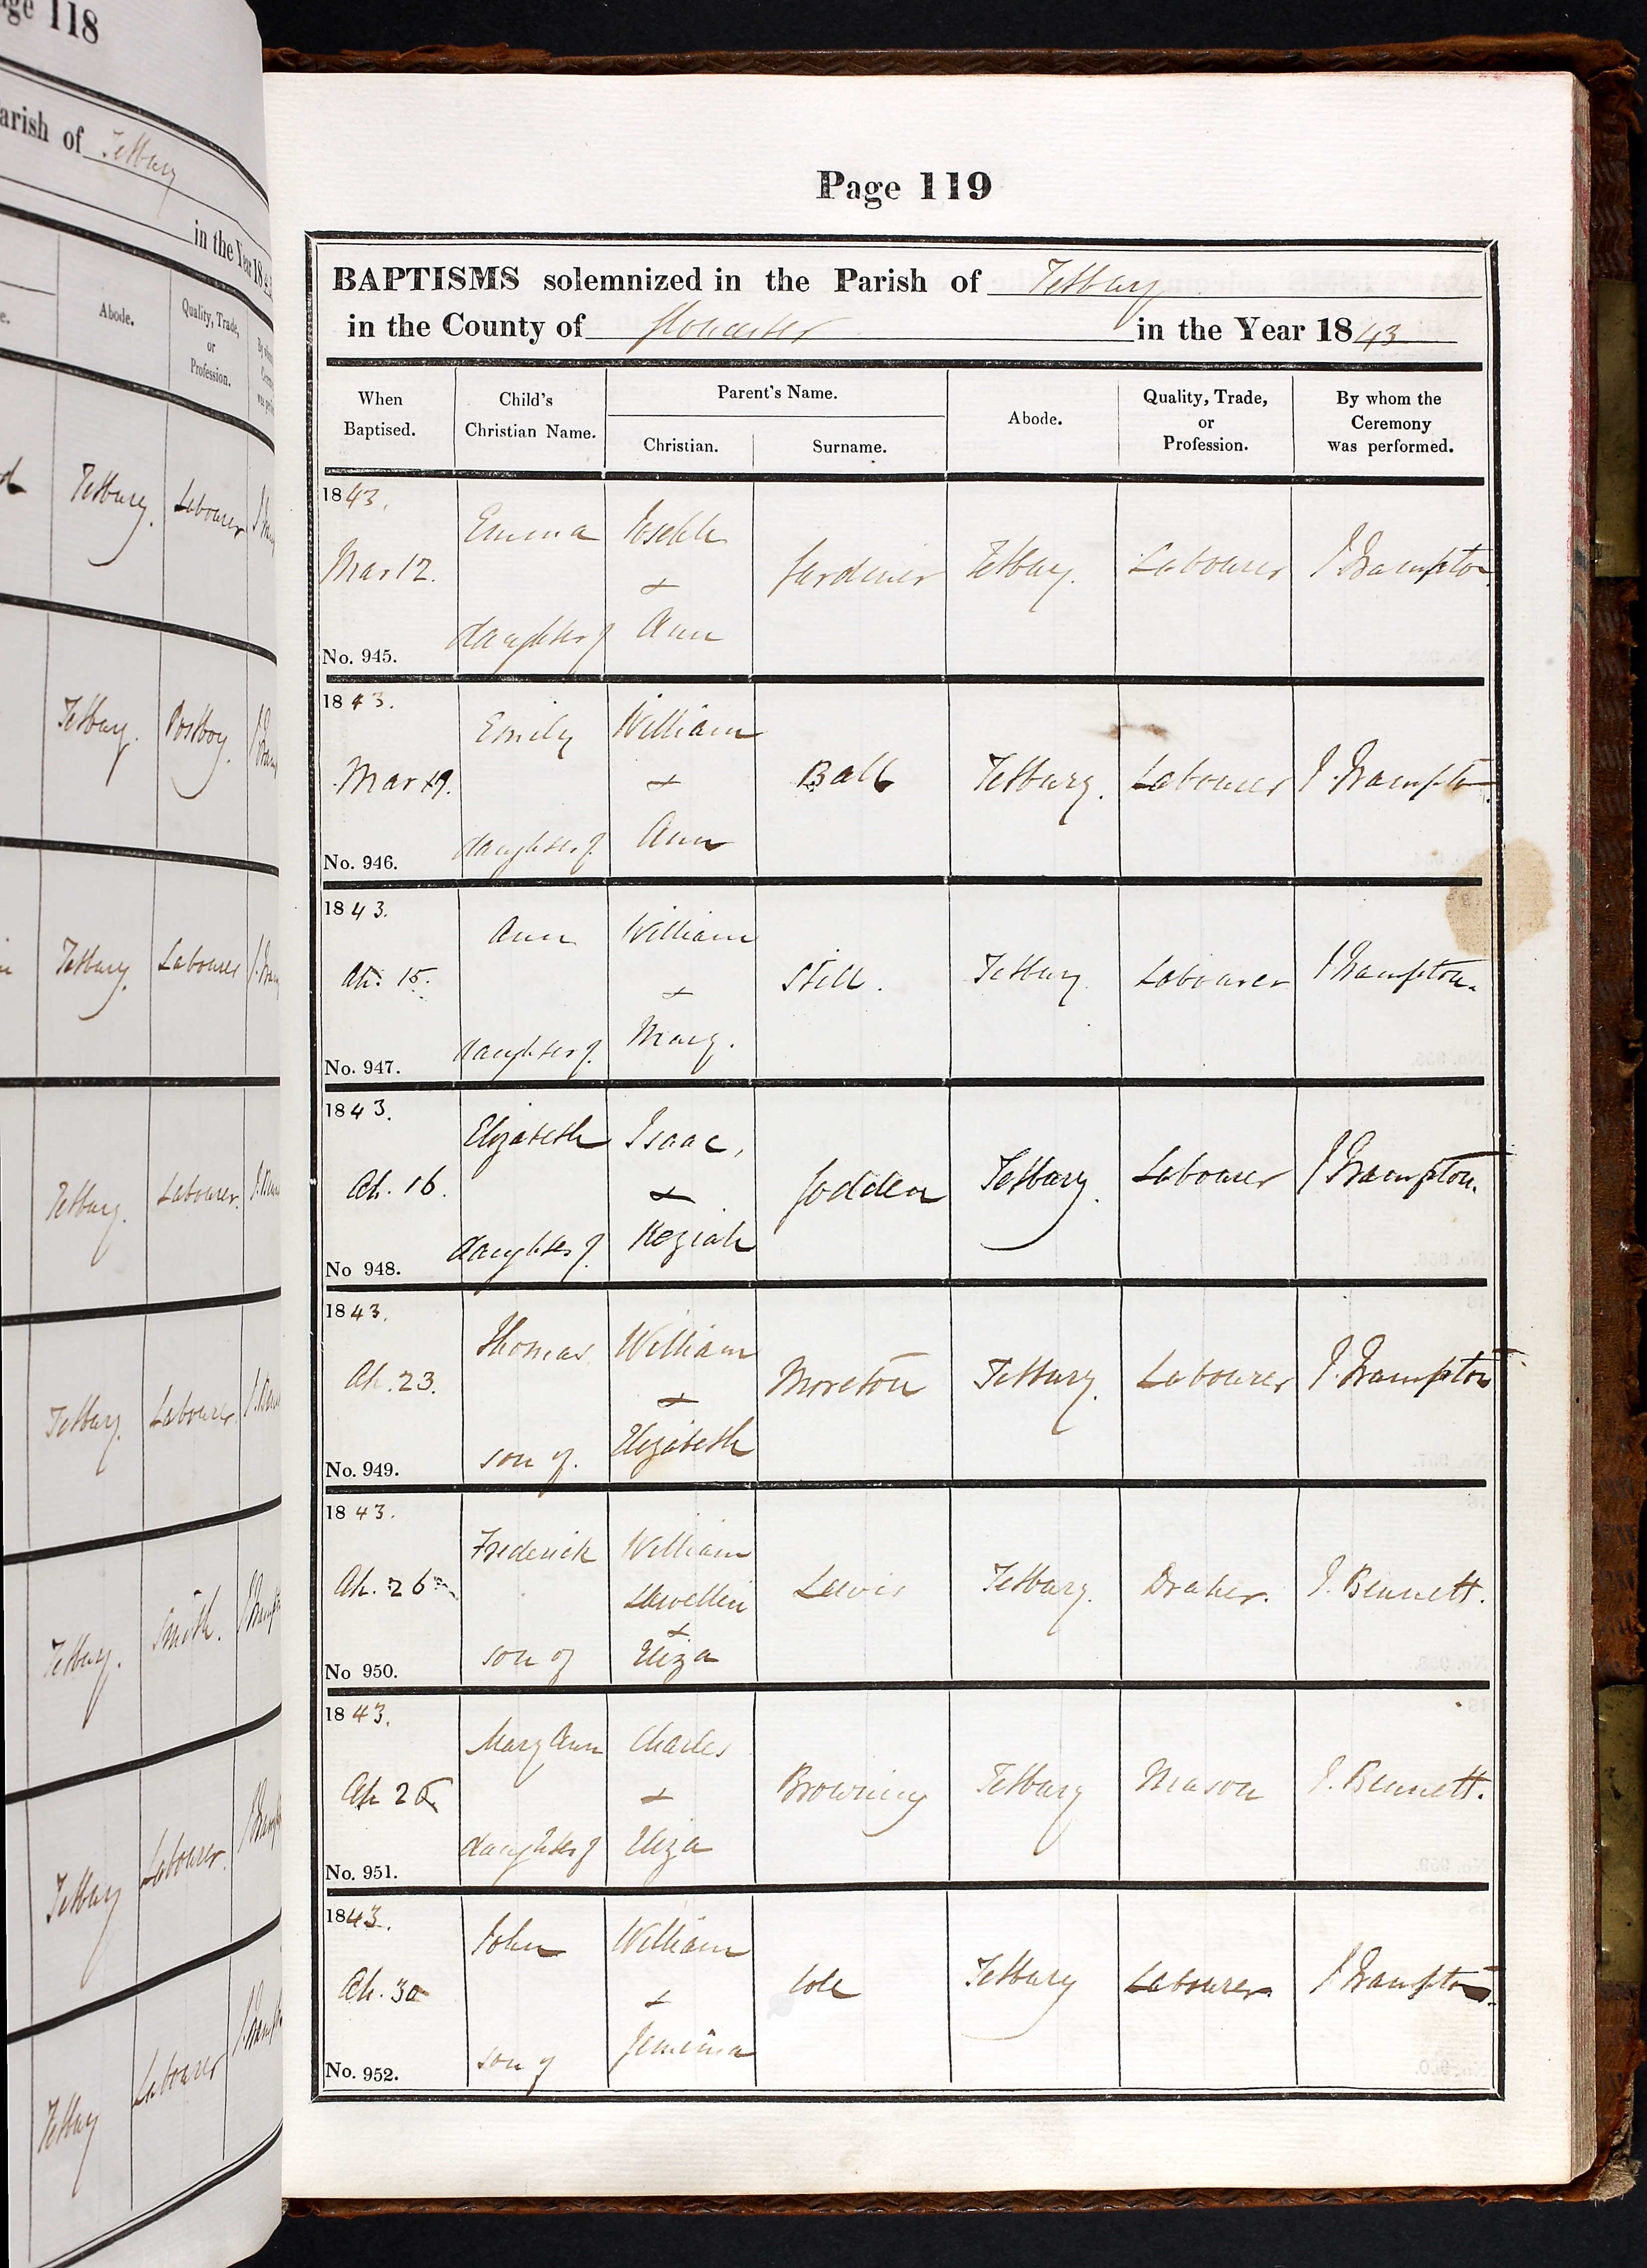 Page 118
Parish of Tetbury
in the Year 18
Abode.
Quality, Trade,
or
Profession.
Tetbury. Labourer
Tetbury. Postboy.
Tetbury. Labourer
Tetbury. Labourer.
Tetbury. Labourer.
Tetbury. Smith.
Tetbury Labourer.
Tetbury Labourer
Page 119
BAPTISMS solemnized in the Parish of Tetbury
in the County of Gloucester in the Year 1843
When
Baptised.
Child's
Christian Name.
Parent's Name.
Christian.
Surname.
Abode.
Quality, Trade,
or
Profession.
By whom the
Ceremony
was performed.
1843.
Mar 12.
No. 945.
Emma
daughter of
Joseph
+
Ann
Gardiner
Tetbury.
Labourer
J Frampton
1843.
Mar 19.
No. 946.
Emily
daughter of
William
+
Ann
Ball
Tetbury.
Labourer
J. Frampton
1843.
Ap. 15.
No. 947.
Ann
daughter of
William
+
Mary.
Still.
Tetbury
Labourer
J Frampton.
1843.
Ap. 16.
No 948.
Elizabeth
daughter of
Isaac,
+
Keziah
Godden
Tetbury.
Labourer
J Frampton.
1843.
Ap. 23.
No. 949.
Thomas
son of.
William
+
Elizabeth
Moreton
Tetbury.
Labourer
J. Frampton
1843.
Ap. 26
No 950.
Frederick
son of
William
Llewellin
+
Eliza
Lewis
Tetbury.
Draper.
J. Bennett.
1843.
Ap 26
No. 951.
Mary Ann
daughter of
Charles
+
Eliza
Browning
Tetbury
Mason
J. Bennett.
1843.
Ap. 30
No. 952.
John
son of
William
+
Jemima
Cole
Tetbury
Labourer
J Frampton.